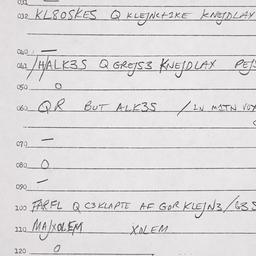 031 —
032 KL8OSKES Q KLEJNC+IKE KNEJDLAY
040 —
041 /HALK3S Q GREJS3 KNEJDLAX PEJS
050 O
060 QR BUT ALK3S / IN MITN VOX
070 —
080 O
090 —
100 FARFL Q C3KLAPTE AF GOR KLEJN3/
110 MAJXOLEM XOLEM
120 O